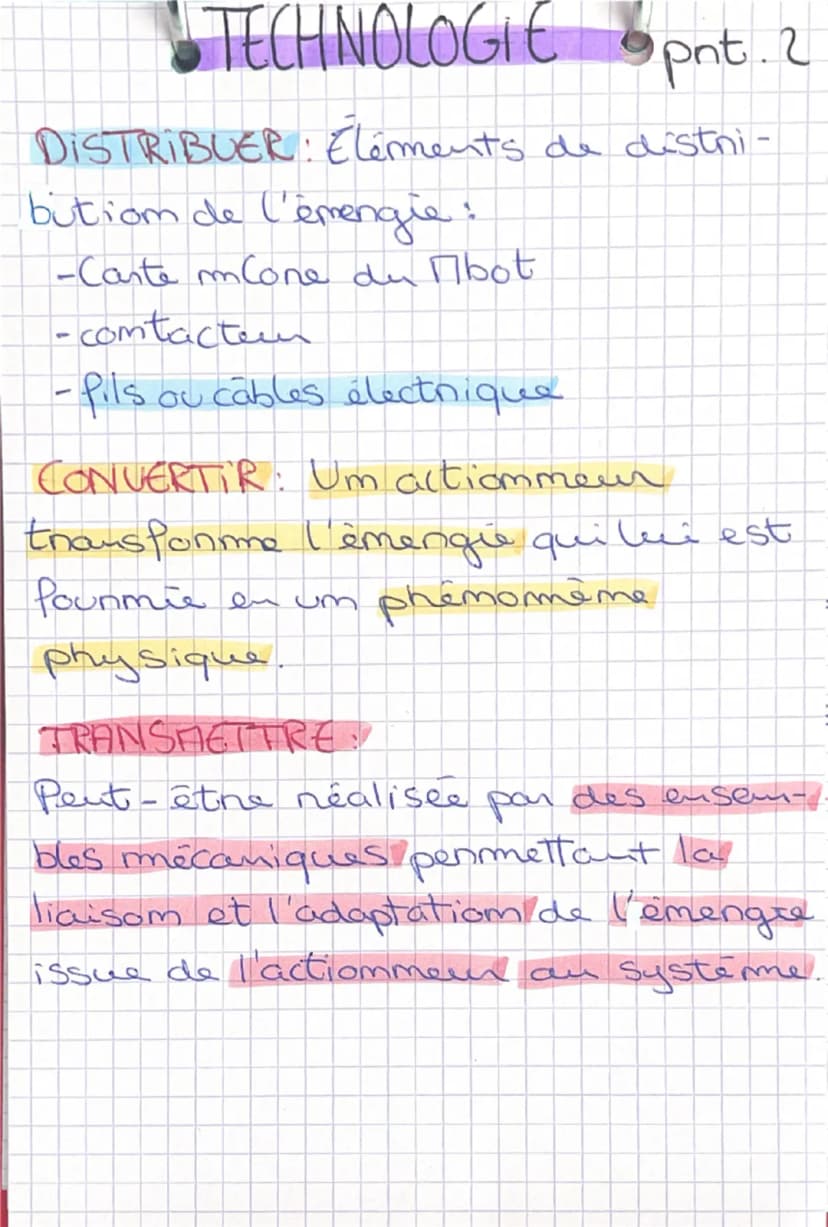 TECHNOLOGIE prt. 2
DISTRIBUER : Éléments de distri-
bution de l'énergie :
-Carte mCore du Mbot
-contacteur
-fils ou câbles électrique
CONVERTIR : Un actionneur
transforme l'énergie qui lui est
fournie en un phénomène
physique.
TRANSMETTRE :
Peut-être réalisée par des ensem-
bles mécaniques permettant la
liaison et l'adaptation de l'énergie
issue de l'actionneur au système.